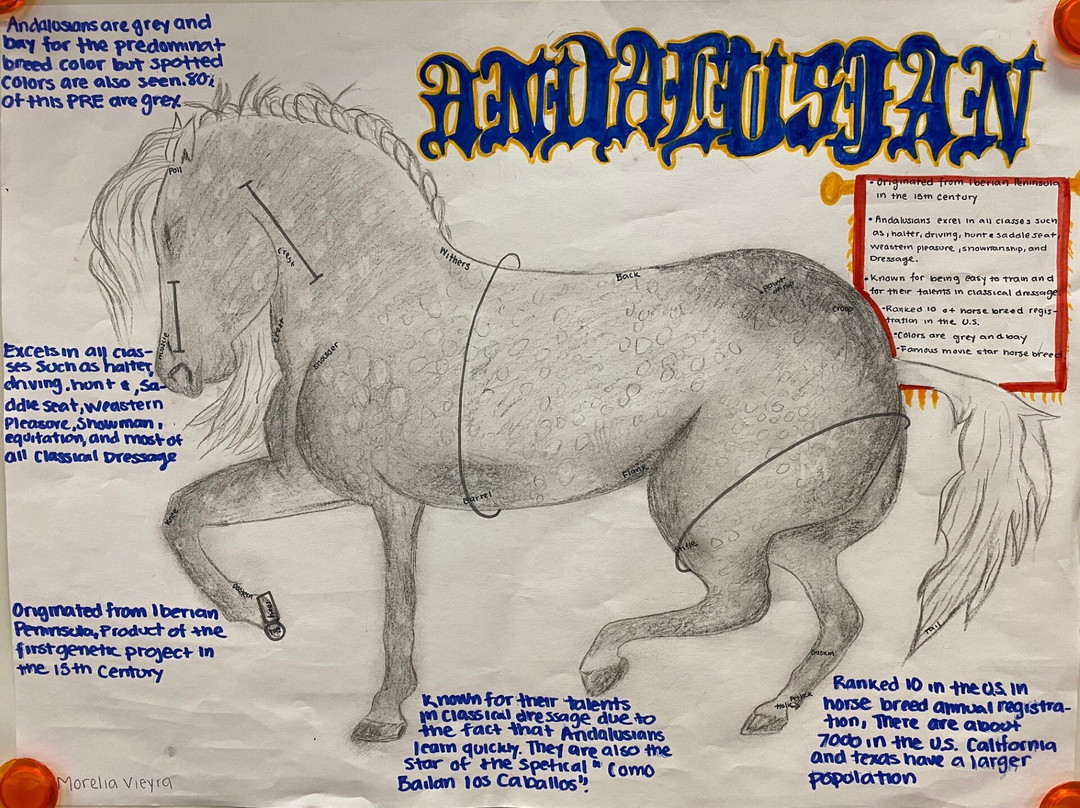 Andalusians are grey and
bay for the predominat
breed color but spotted
colors are also seen. 80%
of this PRE are grey.
ANDALUSIAN
• Originated from Iberian Peninsula
in the 15th century
• Andalusians excel in all classes such
as, halter, driving, hunt & saddle seat,
weastern pleasure, showmanship, and
Dressage.
• Known for being easy to train and
for their talents in classical dressage
• Ranked 10 of horse breed regis-
tration in the U.S.
• Colors are grey and bay
• Famous movie star horse breed
Poll
Crest
Withers
Back
point of hip
croop
muzzle
Shoulder
Excels in all clas-
ses such as halter,
driving, hunt &, Sa-
ddle seat, weastern
Pleasure, Showman,
equitation, and most of
all Classical Dressage
Flank
Barrel
Knee
Pastern
Hoof
Toe
Tail
Gaskin
Originated from Iberian
Peninsula, Product of the
first genetic project in
the 15th Century
Known for their talents
in classical dressage due to
the fact that Andalusians
learn quickly. They are also the
star of the spetical " como
Bailan los Caballos"!
Ranked 10 in the U.S. in
horse breed annual registra-
tion, There are about
7000 in the U.S. California
and texas have a larger
popolation
Morelia Vieyra